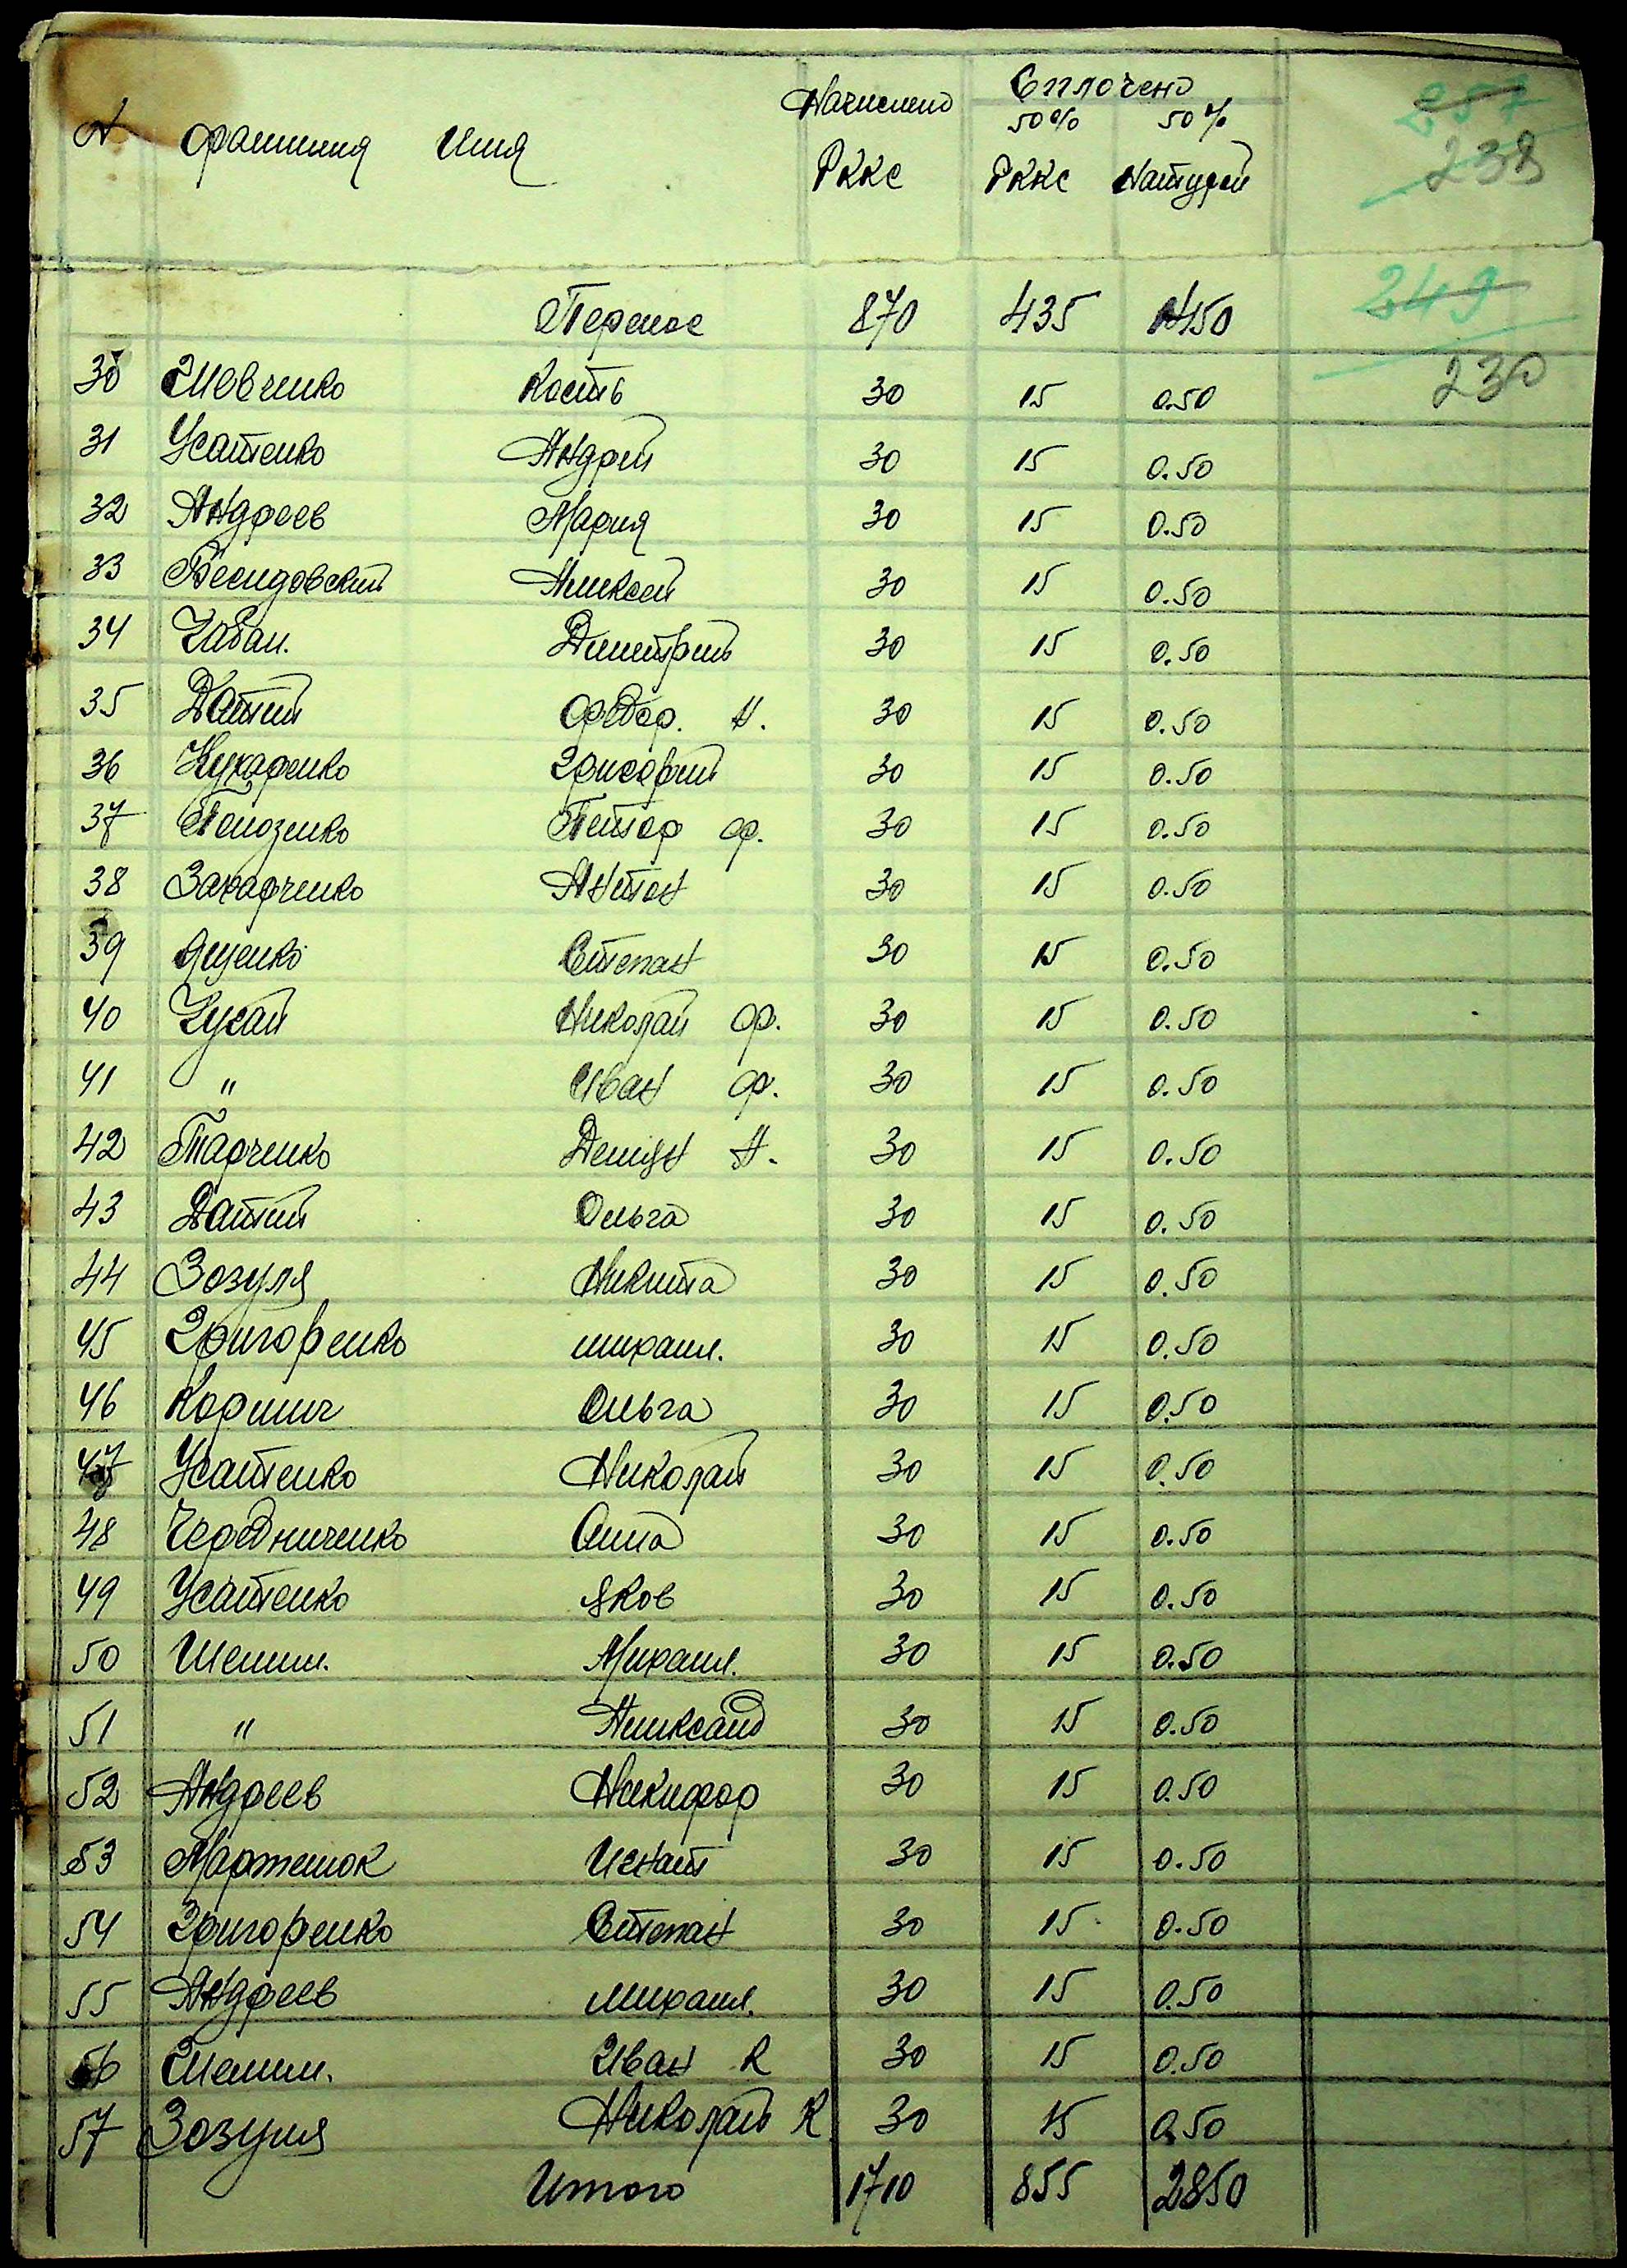 N Фамилия Имя Начислено Сплочено
50% 50%
РККС РККС Натурой
257
238
Перенос 870 435 1450
249
230
30 Шевченко Кость 30 15 0.50
31 Усатенко Андрей 30 15 0.50
32 Андреев Мария 30 15 0.50
33 Весидовский Алексей 30 15 0.50
34 Чабан. Димитрий 30 15 0.50
35 Датий Федор. Н. 30 15 0.50
36 Кухаренко Григорий 30 15 0.50
37 Петор ф. 30 15 0.50
38 Захарченко Антон 30 15 0.50
39 Яценко Степан 30 15 0.50
40 Николай ф. 30 15 0.50
41 " Иван ф. 30 15 0.50
42 Тарченко Демян Н. 30 15 0.50
43 Датий Ольга 30 15 0.50
44 Зозуля Никита 30 15 0.50
45 Григоренко михаил. 30 15 0.50
46 Ольга 30 15 0.50
47 Усатенко Николай 30 15 0.50
48 Чередниченко Анна 30 15 0.50
49 Усатенко Яков 30 15 0.50
50 Михаил. 30 15 0.50
51 " Александ 30 15 0.50
52 Андреев Никифор 30 15 0.50
53 Мартенюк Игнат 30 15 0.50
54 Григоренко Степан 30 15 0.50
55 Андреев михаил. 30 15 0.50
56 Иван К 30 15 0.50
57 Зозуля Николай К 30 15 0.50
Итого 1710 855 2850